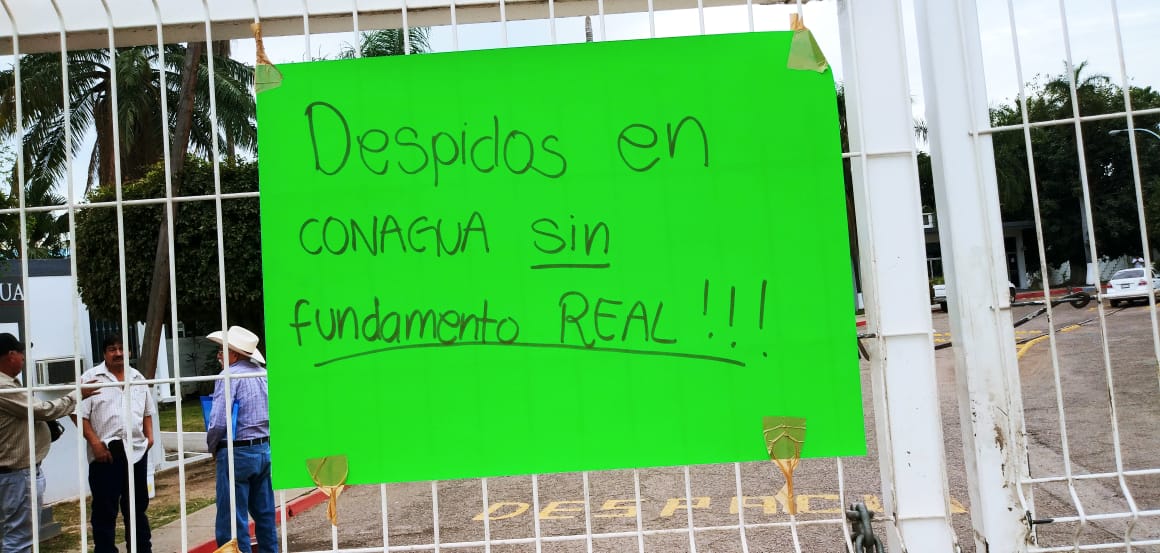 Despidos en
CONAGUA sin
fundamento REAL!!!
UA
DESPACIO